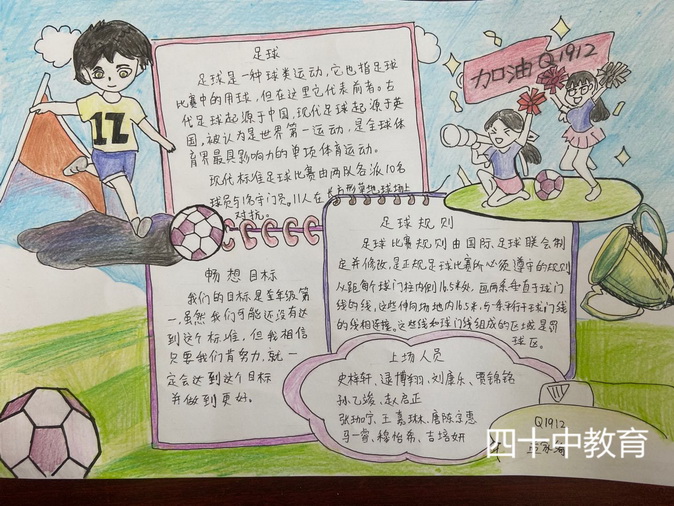 足球
足球是一种球类运动,它也指足球
比赛中的用球,但在这里它代表前者。古
代足球起源于中国,现代足球起源于英
国,被认为是世界第一运动,是全球体
育界最具影响力的单项体育运动。
现代标准足球比赛由两队各派10名
球员与1名守门员。11人在长方形草地球场上
对抗。
加油Q1912
12
畅想目标
我们的目标是全年级第
一,虽然我们可能还没有达
到这个标准,但我相信
只要我们肯努力,就一
定会达到这个目标
并做到更好。
足球规则
足球比赛规则由国际足球联会制
定并修改,是正规足球比赛所必须遵守的规则
从距每个球门柱内侧16.5米处,画两条垂直于球门
线的线,这些伸向场地内16.5米,与一条平行于球门线
的线相连接。这些线和球门线组成的区域是罚
球区。
上场人员
史梓轩、逯博翔、刘康乐、贾锦铭
孙乙滚、赵启正
张珈宁、王嘉琳、詹陈京惠
马一睿、穆怡希、吉培妍
Q1912
四十中教育